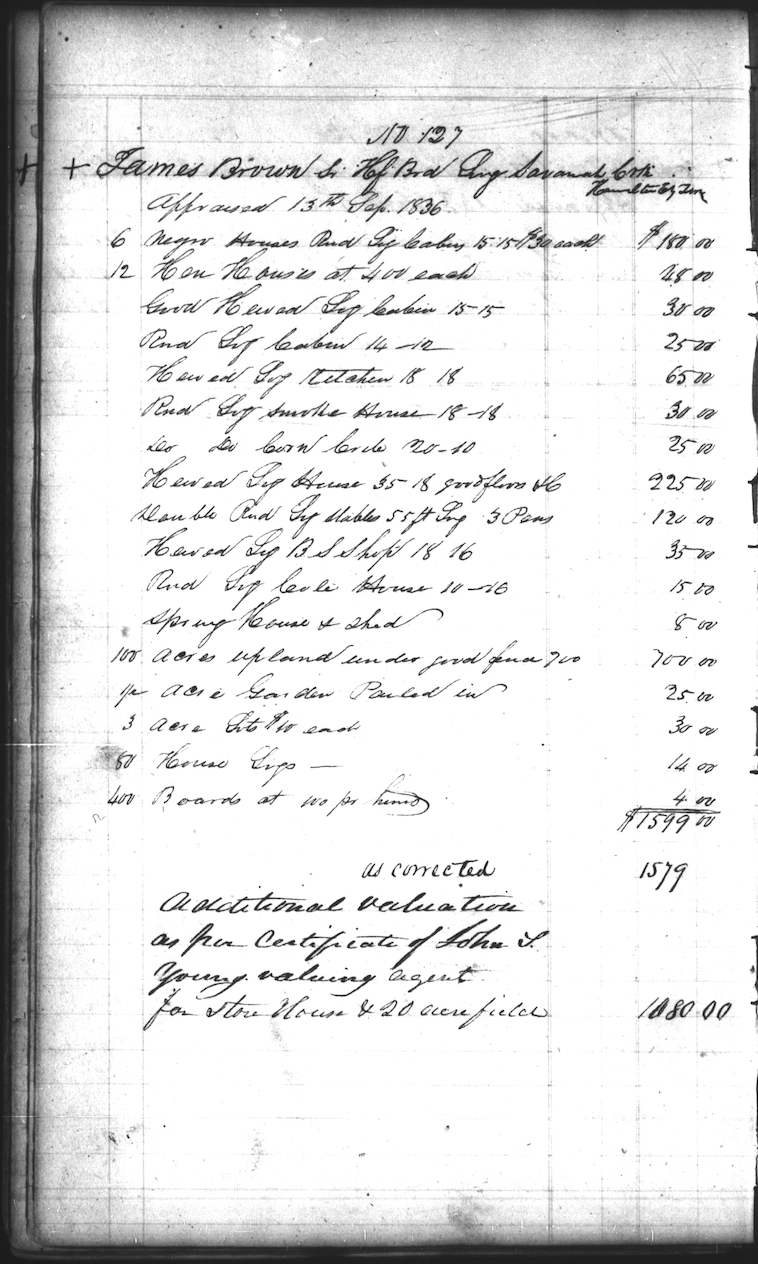 No 127
+ + James Brown Sr Hf Brd Lng Savanah Crk
Hamilton Cty Ten
Appraised 13th Sep. 1836
6 Negro Houses Rnd Log Cabins 15.15 $30 each $180 00
12 Hen Houses at 400 each 48 00
Good Hewed Log Cabin 15-15 30 00
Rnd Log Cabin 14-12 25 00
Hewed Log Kitchen 18 18 65 00
Rnd Log Smoke House 18-18 30 00
Do Do Corn Crib 20-10 25 00
Hewed Log House 35-18 good floors &C 225 00
Double Rnd Log Stables 55 ft Lng 3 Pens 120 00
Hewed Log B S Shop 18 16 35 00
Rnd Log House 10-16 15 00
Spring House & Shed 8 00
100 Acres upland under good fence 700 700 00
1/2 Acre Garden Pailed in 25 00
3 Acre Lots $10 each 30 00
80 House Logs — 14 00
400 Boards at 100 pr hund 4 00
$1599 00
as corrected 1579
Additional valuation
as per Certificate of John S.
Young valuing agent
for Store House & 20 acre field 1080 00